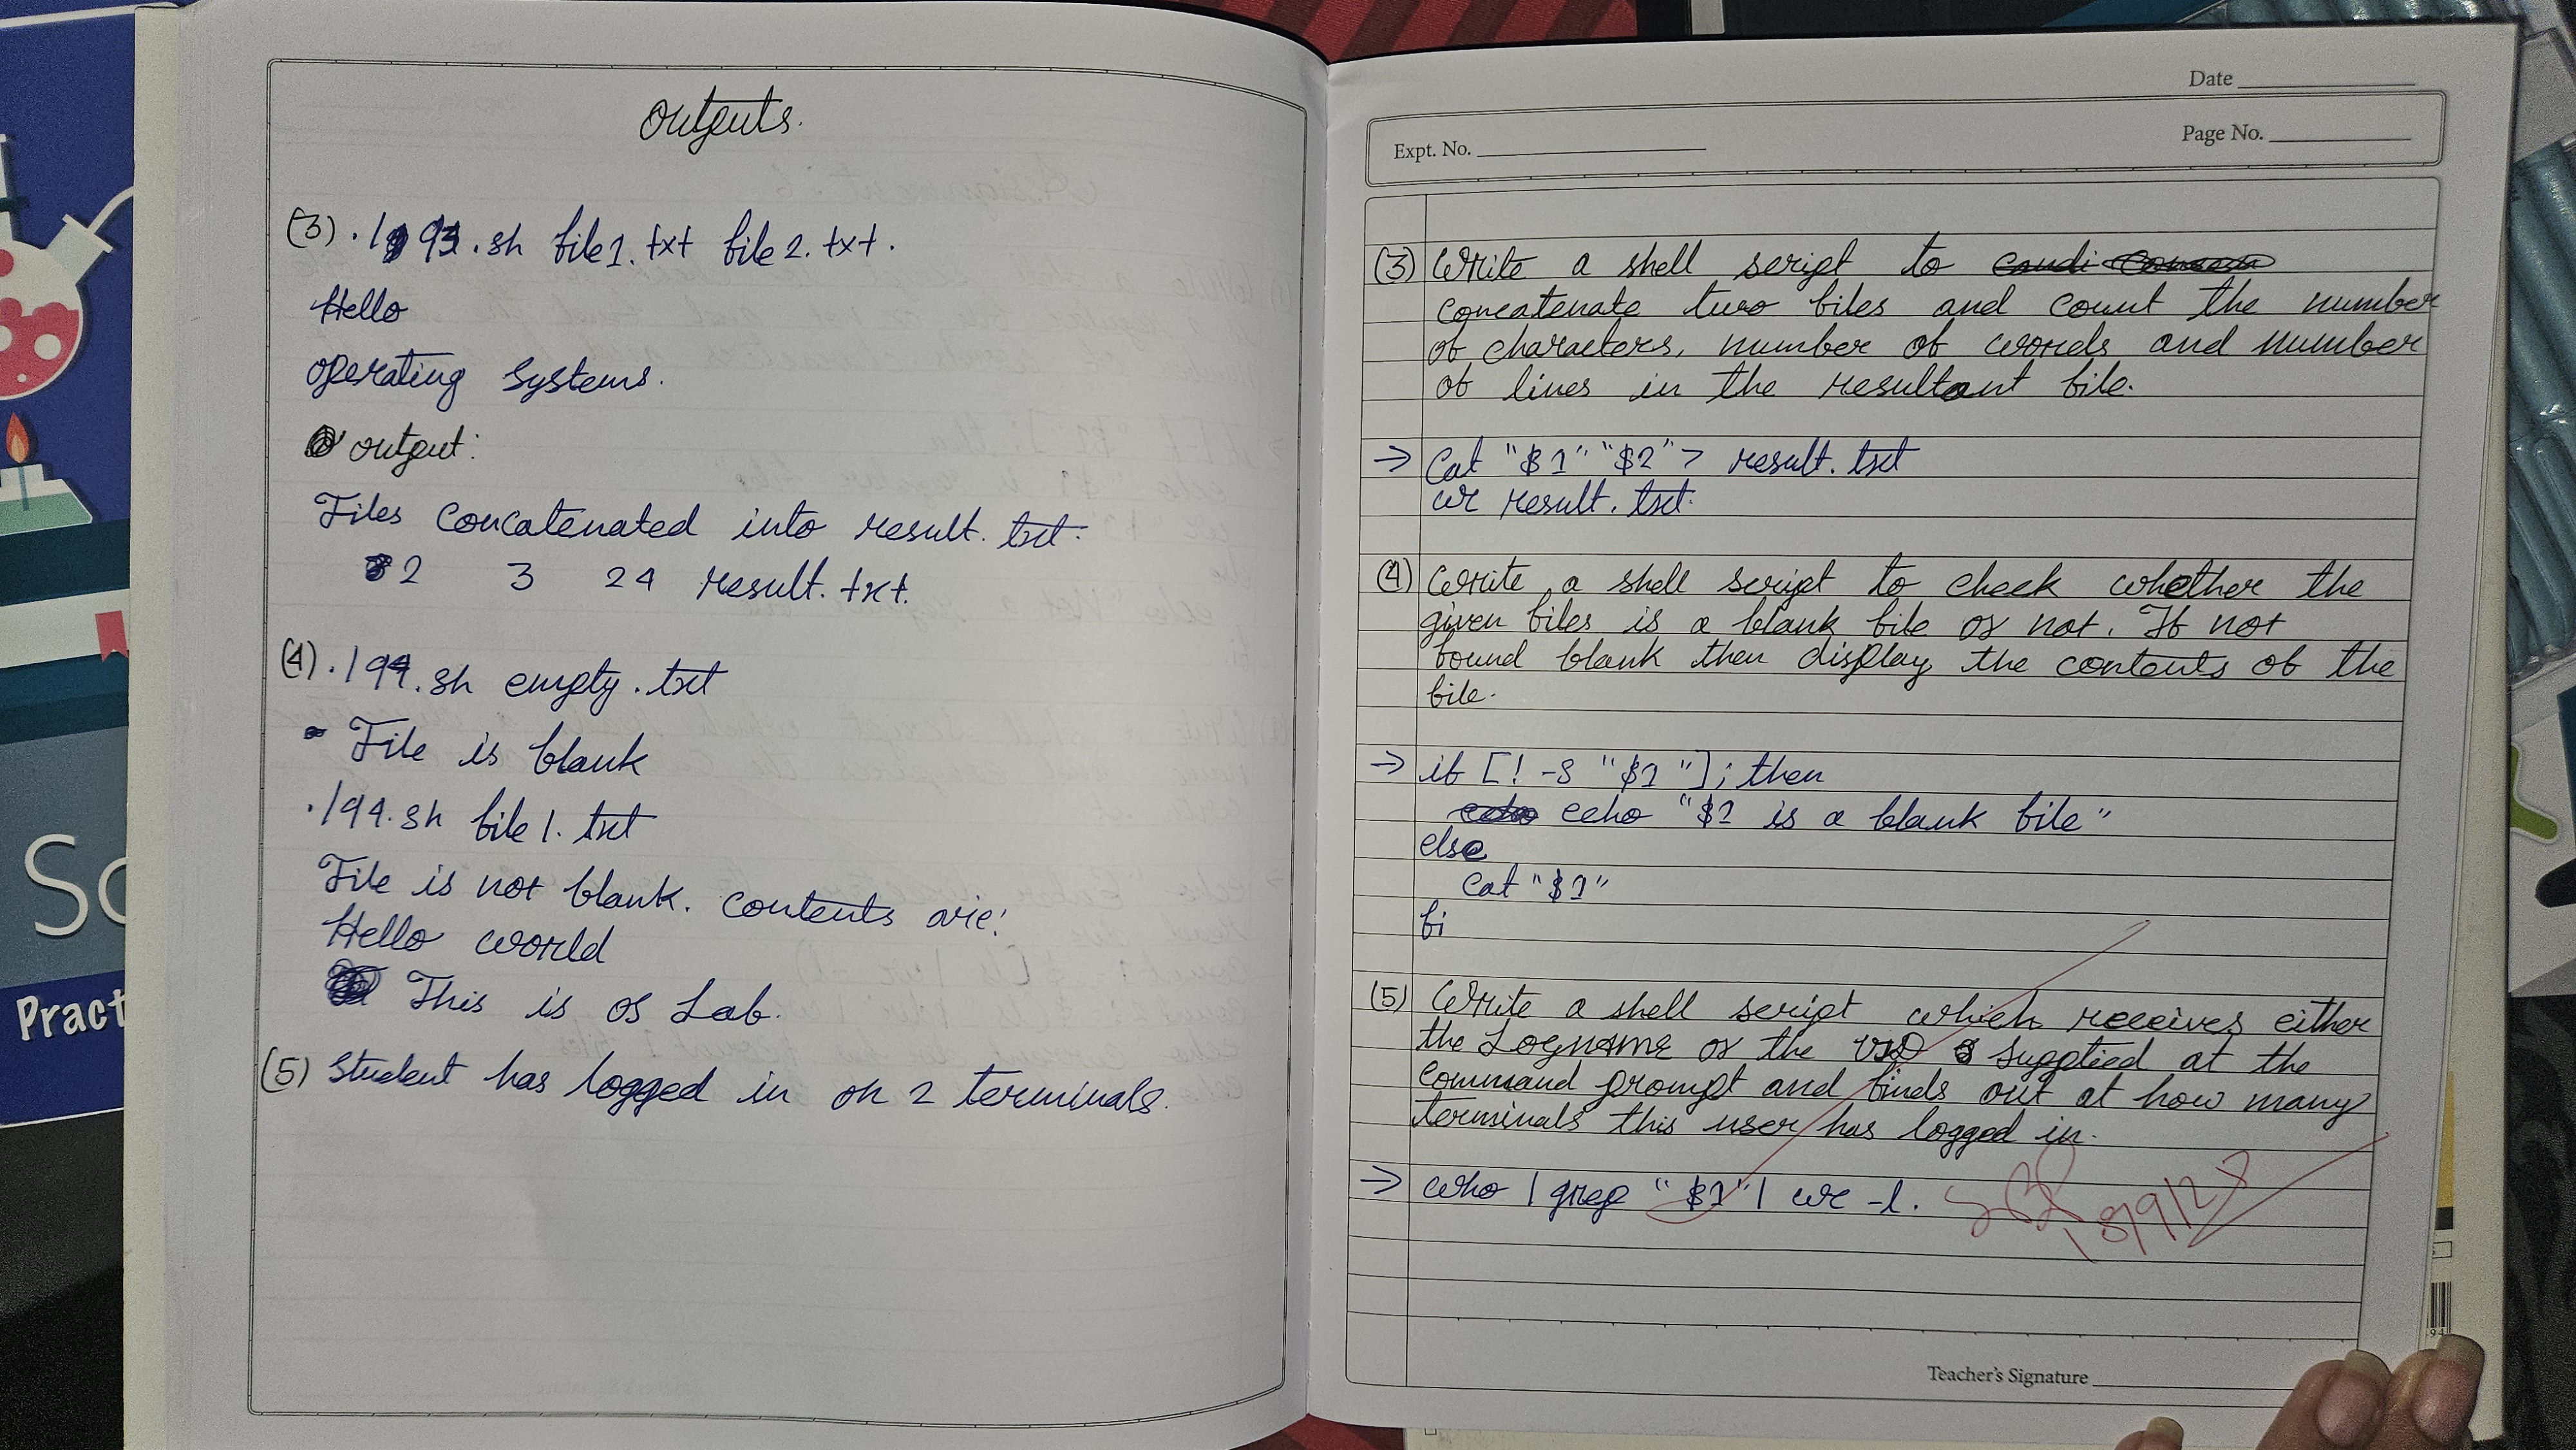 Outputs.
(3) ./q3.sh file1.txt file2.txt.
Hello
operating systems.
output:
Files concatenated into result.txt.
2 3 24 result.txt.
(4) ./q4.sh empty.txt
File is blank
./q4.sh file1.txt
File is not blank. Contents are:
Hello world
This is OS Lab.
(5) Student has logged in on 2 terminals.
So
Pract
Date
Expt. No.
Page No.
(3) Write a shell script to
concatenate two files and count the number
of characters, number of words and number
of lines in the resultant file.
→ Cat "$1" "$2" > result.txt
wc result.txt.
(4) Write a shell script to check whether the
given files is a blank file or not. If not
found blank then display the contents of the
file.
→ if [! -s "$1"]; then
echo "$1 is a blank file"
else
Cat "$1"
fi
(5) Write a shell script which receives either
the LogName or the UID supplied at the
command prompt and finds out at how many
terminals this user has logged in.
→ who | grep "$1" | wc -l.
Teacher's Signature